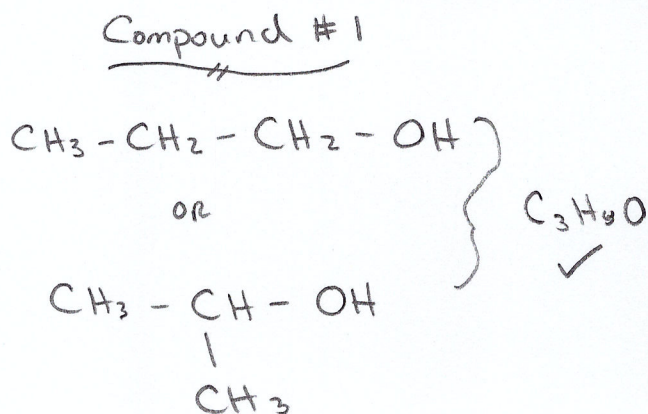 Compound #1
CH3 - CH2 - CH2 - OH
OR
C3H8O
CH3 - CH - OH
CH3